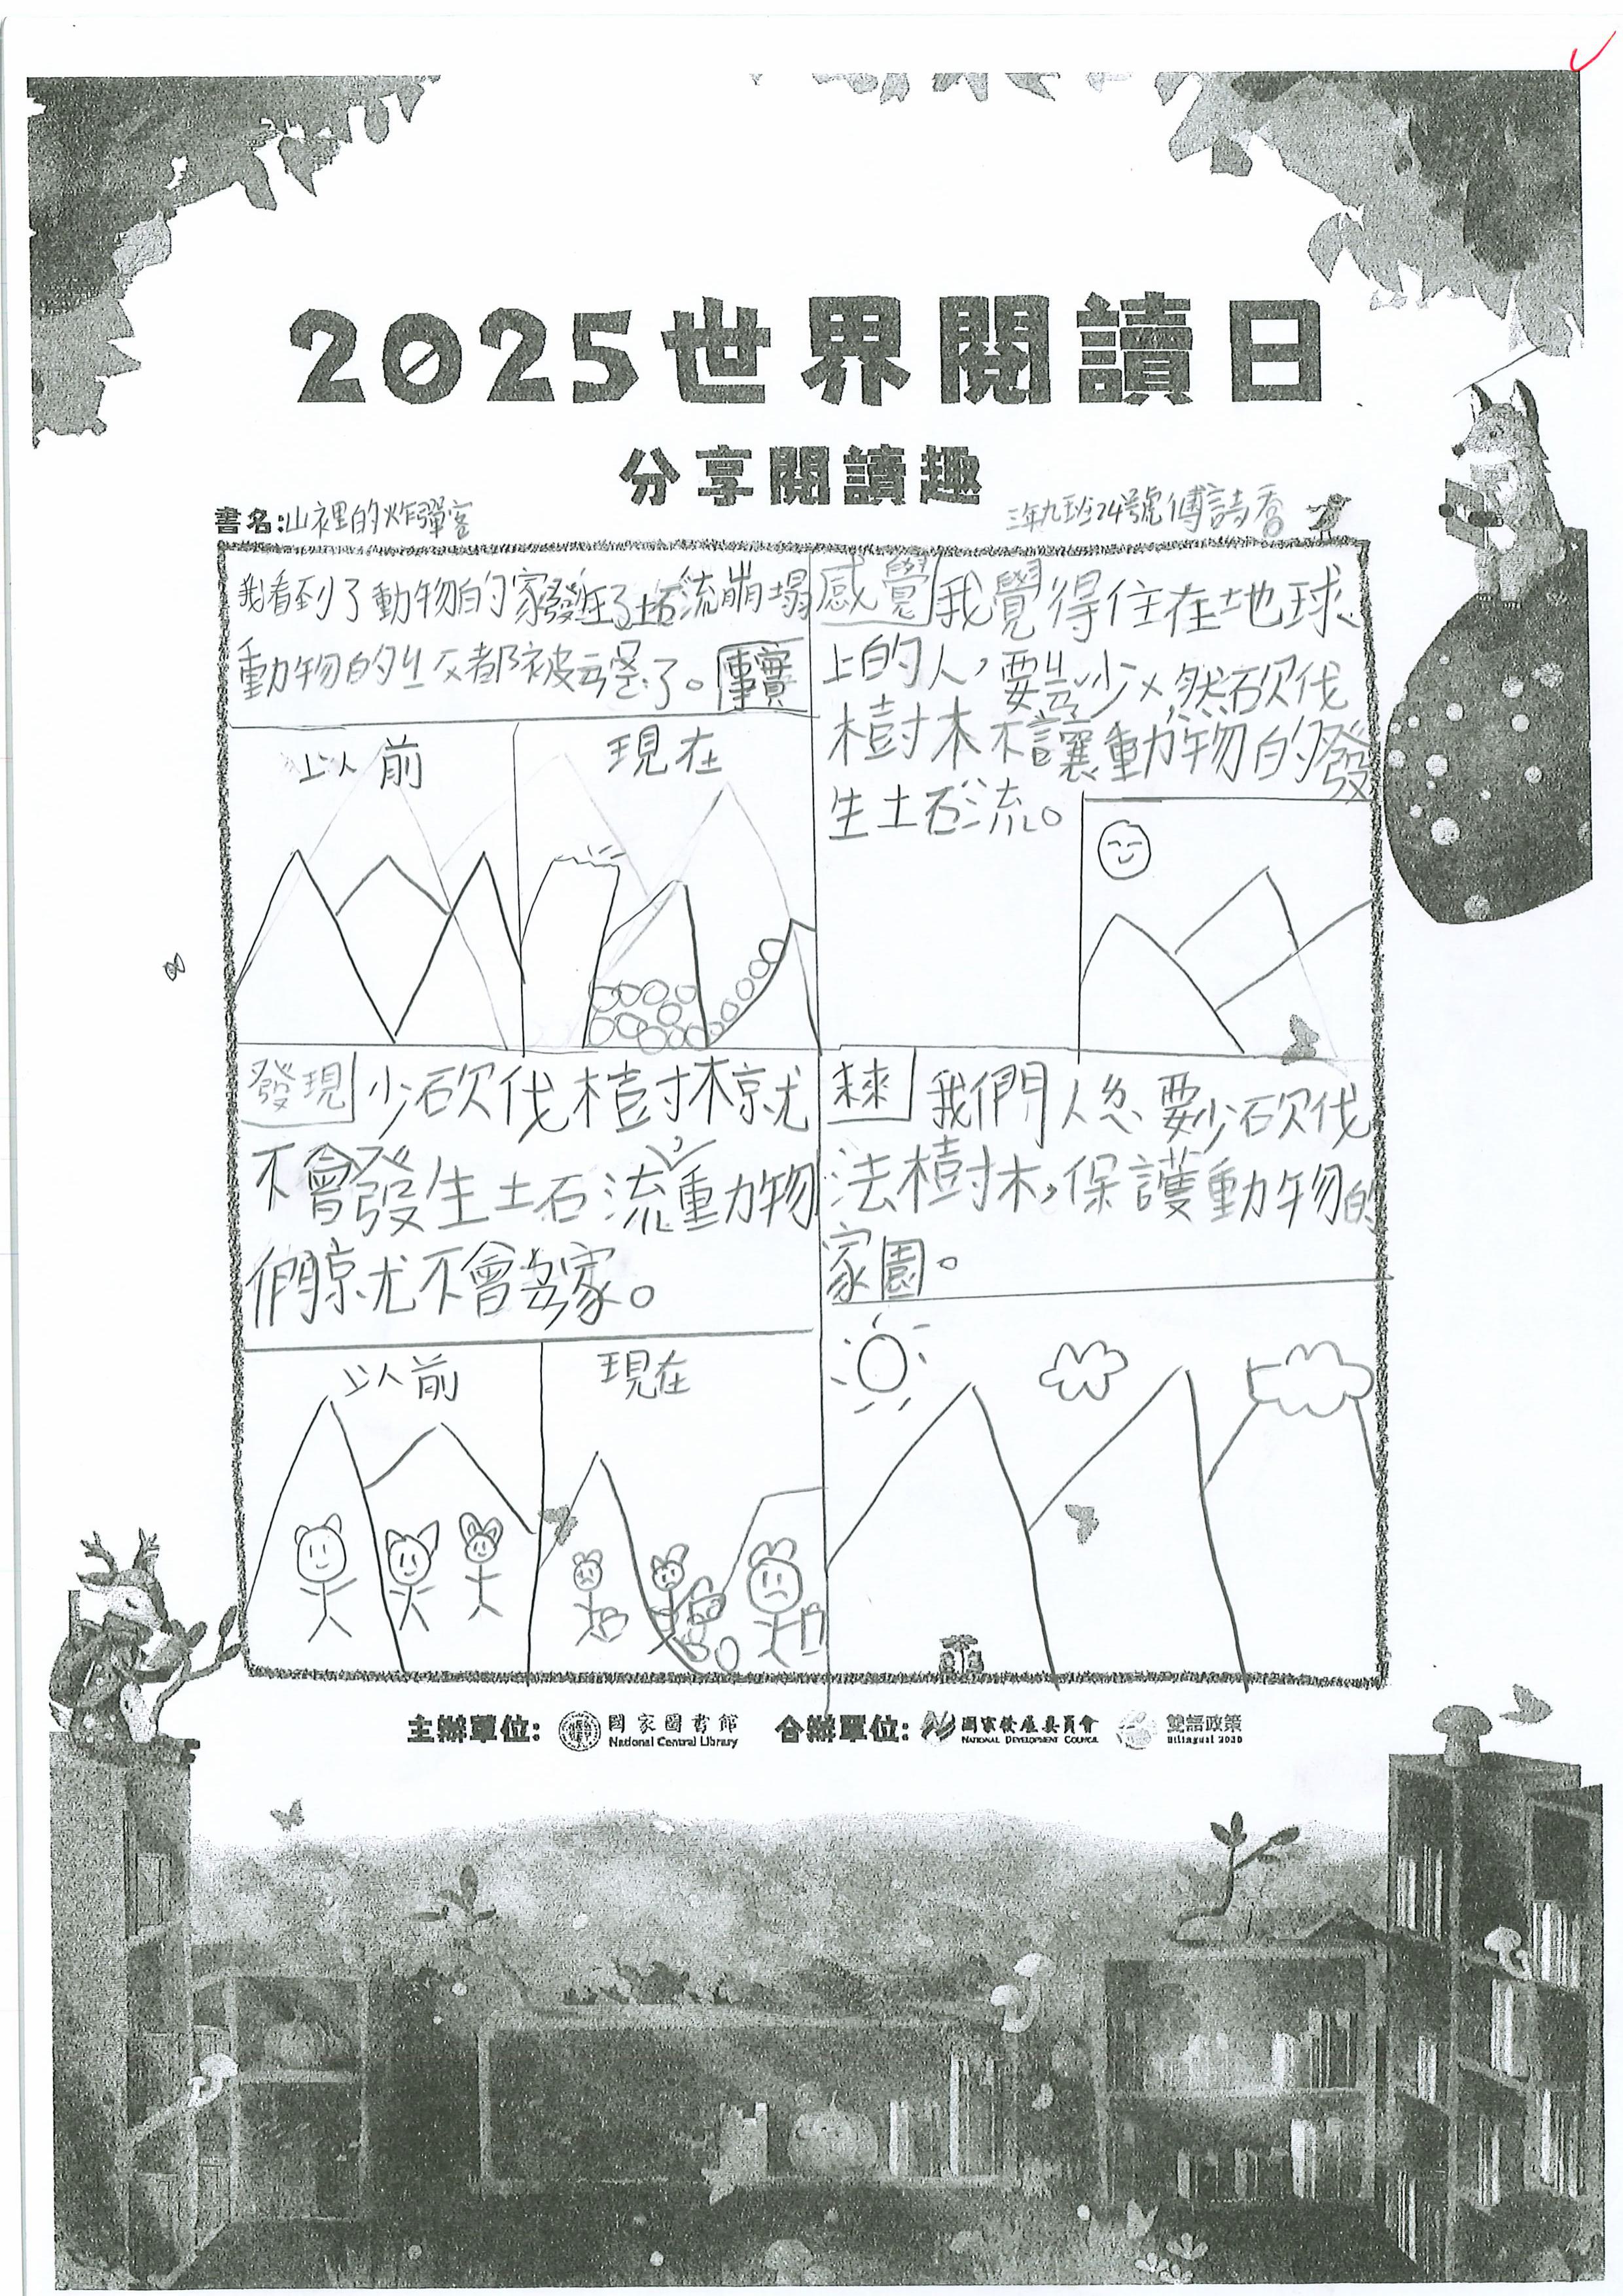 2025世界閱讀日
分享閱讀趣
書名:山裡的炸彈客
三年九班24號傅詩喬
我看到了動物的家發生了土石流崩塌
動物的ㄐ一ㄡ都被
了。事實
以前
現在
感覺 我覺得住在地球
上的人,要
少
然砍伐
樹木不讓動物的發
生土石流。
發現 少砍伐樹林就
不會發生土石流,動物
們就不會
家。
以前
現在
未來 我們人
要少砍伐
法樹木,保護動物的
家園。
主辦單位: 國家圖書館 National Central Library
合辦單位: 國家發展委員會 NATIONAL DEVELOPMENT COUNCIL
雙語政策 Bilingual 2030